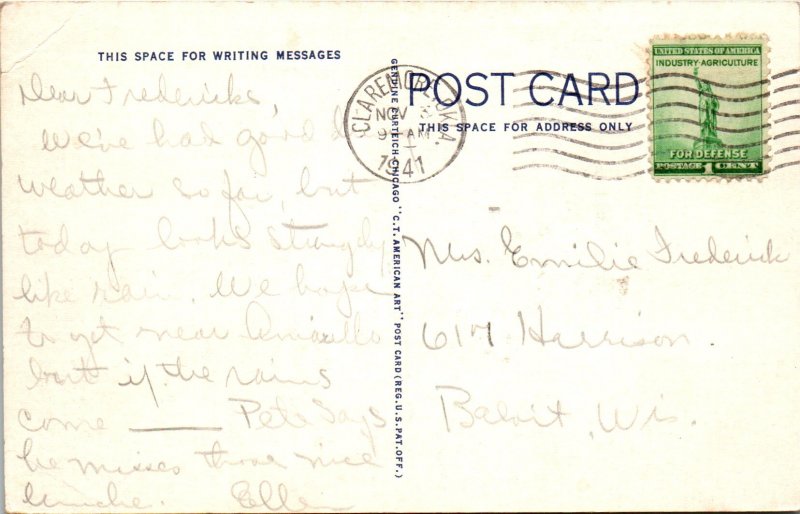 THIS SPACE FOR WRITING MESSAGES
Dear Fredericks,
We've had good
weather so far, but
today looks strongly
like rain. We hope
to get near Amarillo
but if the rains
come ——— Pete says
he misses those nice
lunche. Ellen
GENUINE CURTEICH-CHICAGO "C.T. AMERICAN ART" POST CARD (REG. U.S. PAT. OFF.)
POST CARD
THIS SPACE FOR ADDRESS ONLY
CLAREMORE, OKLA.
NOV
AM
1941
UNITED STATES OF AMERICA
INDUSTRY·AGRICULTURE
FOR DEFENSE
POSTAGE 1 CENT
Mrs. Emilie Frederick
617 Harrison.
Beloit, Wis.